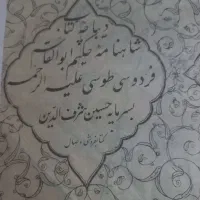 دیباچه کتاب
شاهنامه حکیم ابوالقاسم
فردوسی طوسی علیه الرحمه
بسرمایه حسین شرف الدین